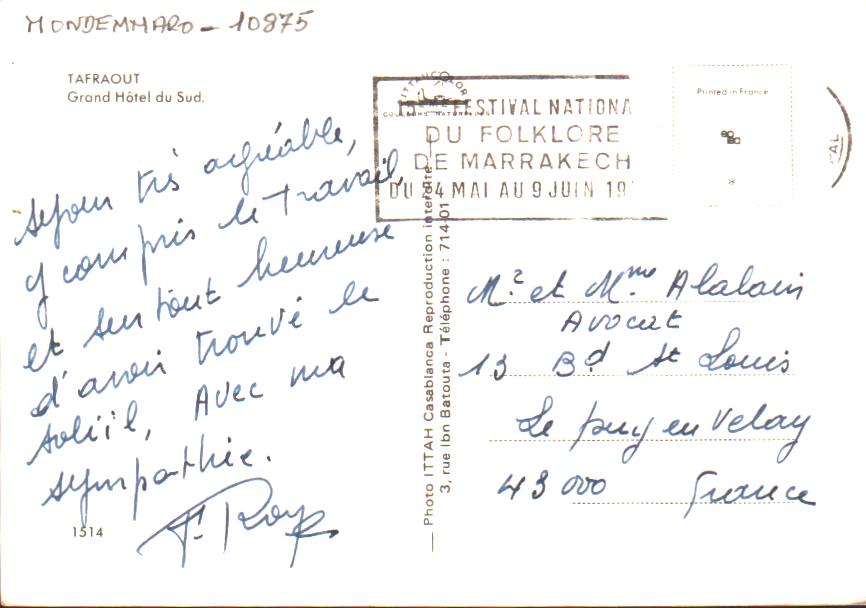 MONDEMMARO - 10875
TAFRAOUT
Grand Hôtel du Sud.
Séjour très agréable,
y compris le travail,
et surtout heureuse
d'avoir trouvé le
soleil, Avec ma
sympathie.
F. Roy
1514
ITTAHCOLOR
COULEURS NATURELLES
FESTIVAL NATIONA
DU FOLKLORE
DE MARRAKECH
DU 24 MAI AU 9 JUIN 19
Printed in France
*
AL
Photo ITTAH Casablanca Reproduction interdite
3, rue Ibn Batouta - Téléphone : 714-01
Mr et Mme Alalain
Avocat
13 Bd St Louis
Le puy en Velay
43 000 France